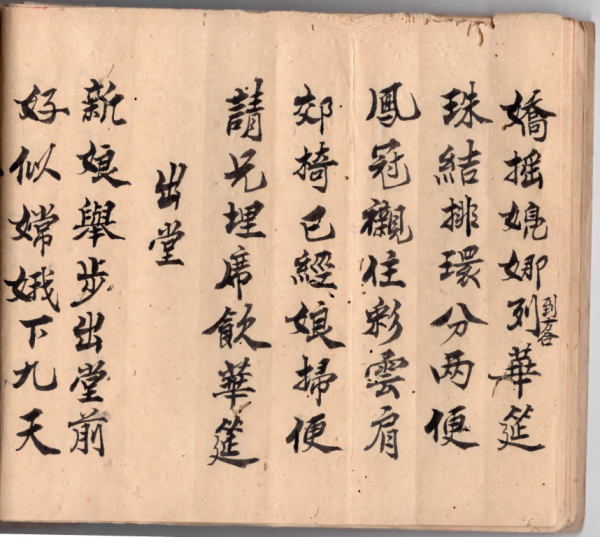 嬌搖娓娜列華筵
到方各
珠結排環分两便
鳳冠襯住彩雲肩
郊椅已經娘掃便
請兄埋席飲華筵
出堂
新娘舉步出堂前
好似嫦娥下九天